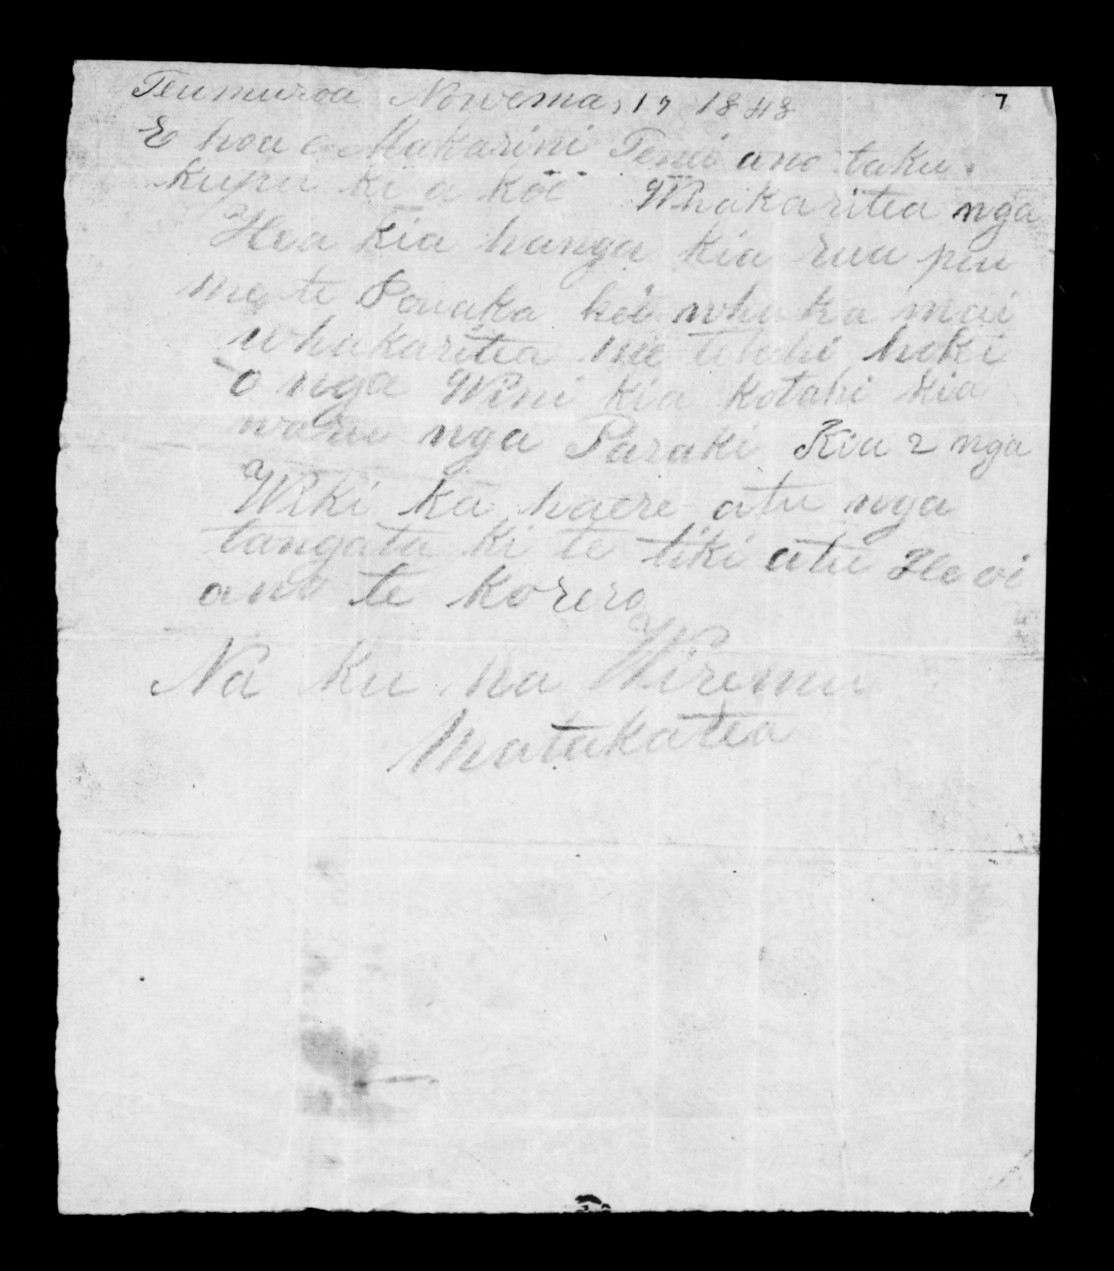 Teumuroa Nowema, 17 1848
7
E hoa e Makarini Tenei ano taku
kupu ki a koe Whakaritea nga
Hea kia hanga kia rua peu
me te Pouaka kei whaka mai
whakaritea me tetehi hoki
o nga Wini kia kotahi kia
waru nga Paraki Kia 2 nga
Wiki ka haere atu nga
tangata ki te tiki atu Heoi
ano te korero
Na ku na Wiremu
Matakatea